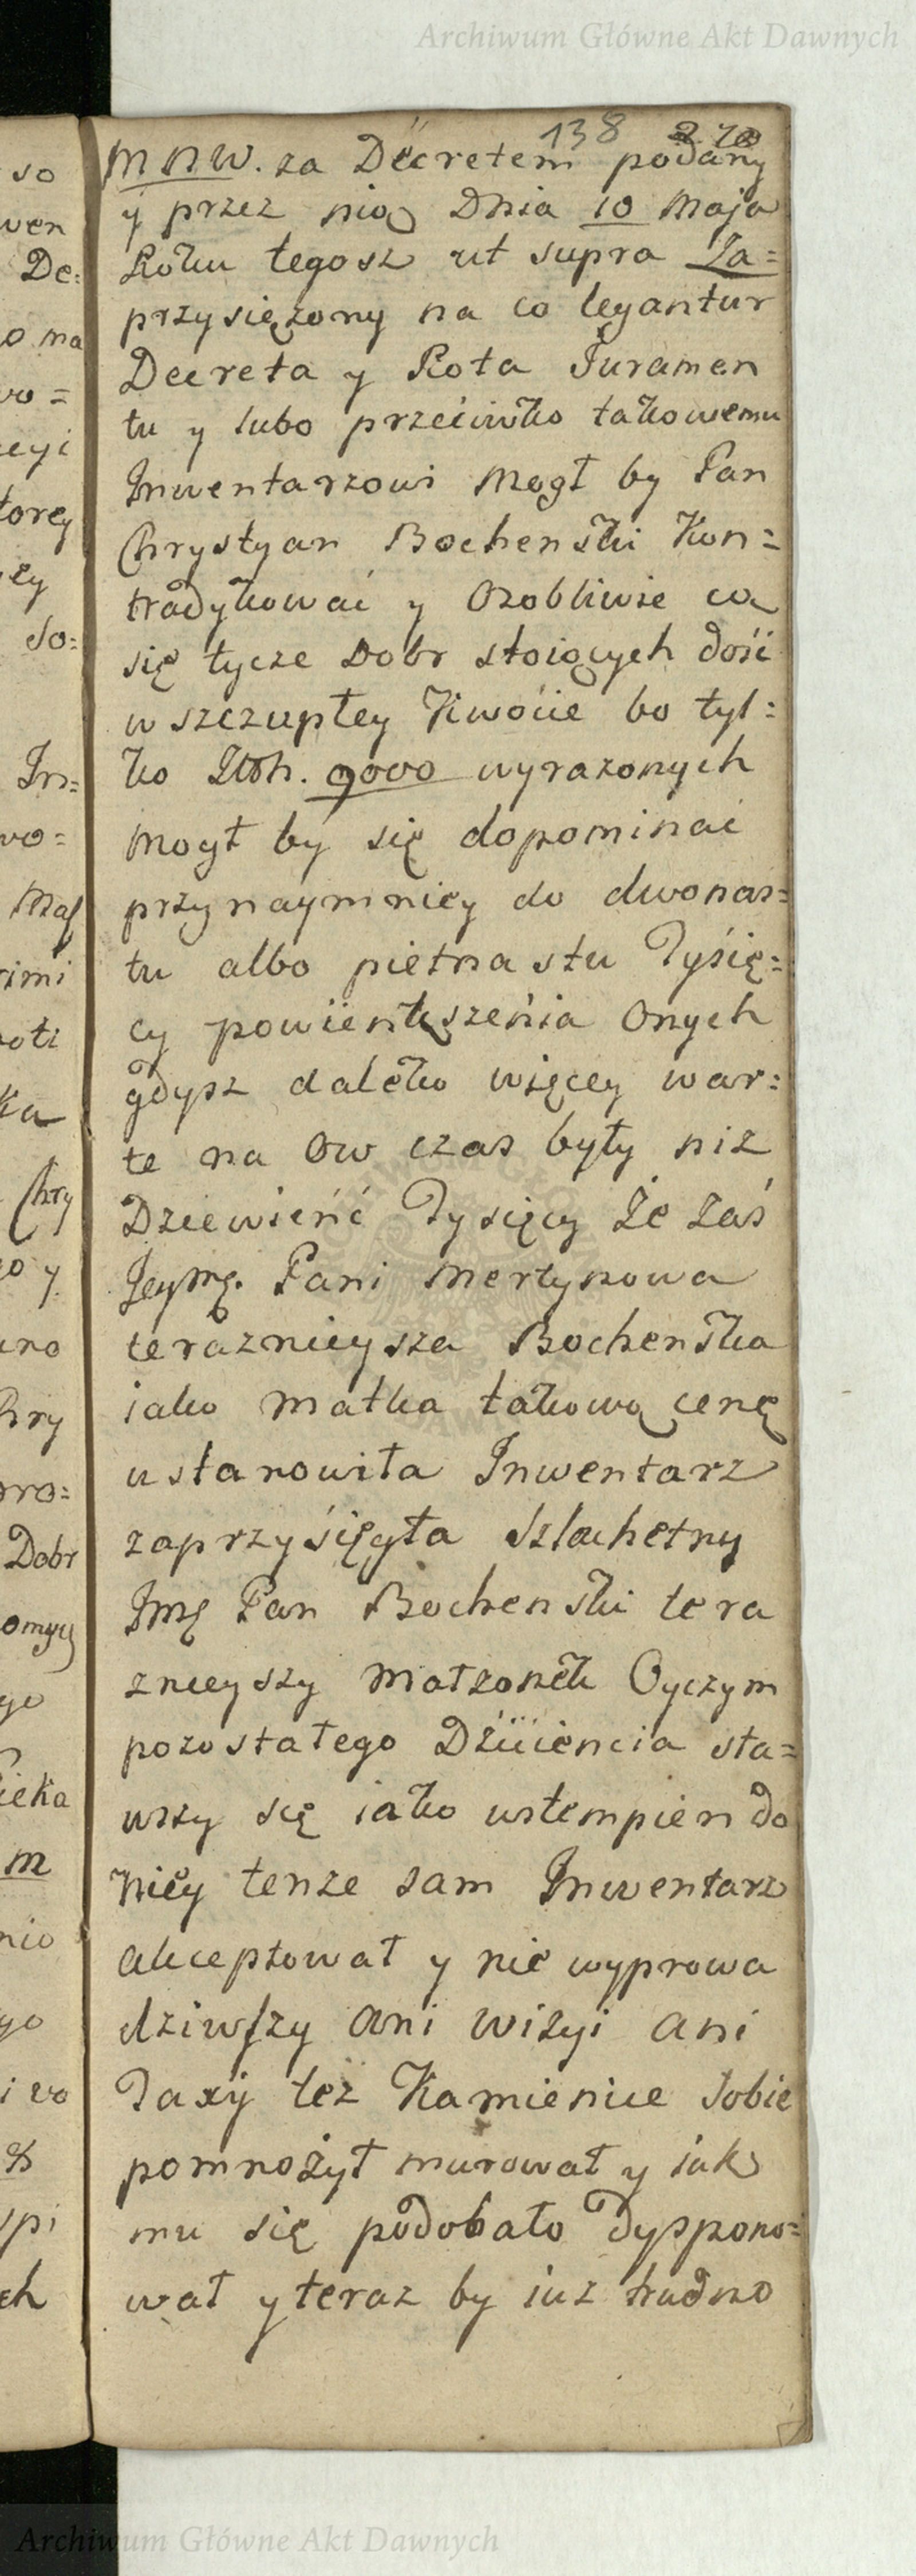 Archiwum Główne Akt Dawnych
138 270
M N W. za Decretem podany
y przez nią Dnia 10 Maja
Roku tegosz ut supra Za=
przysiężony na co legantur
Decreta y Rota Juramen
tu y lubo przeciwko takowemu
Inwentarzowi Mogł by Pan
Chrystyan Bochenski Kon=
tradykować y Osobliwie co
się tycze Dobr stoiących dość
w szczupłey Kwocie bo tyl=
ko 9000 wyrazonych
Mogł by się dopominać
przynaymniey do dwonas=
tu albo pietnastu Tysię=
cy powiększenia Onych
gdysz daleko więcey war=
te na Ow czas były niz
Dziewieńć Tysięcy Że Zaś
Jeymę. Pani Mertynowa
teraznieysza Bochenska
iako Matka takową cenę
ustanowiła Inwentarz
zaprzysięgła Szlachetny
Jmę Pan Bochenski tera
znieyszy Małzonek Oyczym
pozostałego Dziecięcia sta=
wszy się iako wstempien do
Niey tenze sam Inwentarz
akceptował y nie wyprowa
dziwszy Ani Wizyi Ani
Taxy tez Kamienice Sobie
pomnożył murował y iak
mu się podobało Dyspono=
wał y teraz by iuz trudno
so
wen
De:
o ma
wo=
cyi
torey
ey
do:
In=
wo=
Mas
rimi
ka
Chry
o y
ino
hry
pro=
Dobr
go
ieka
m
nio
go
i vo
pi
ch
Archiwum Główne Akt Dawnych